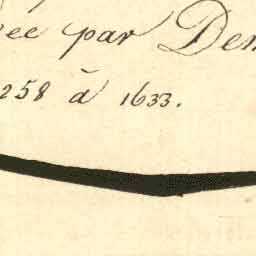 ée par Den
258 à 1633.